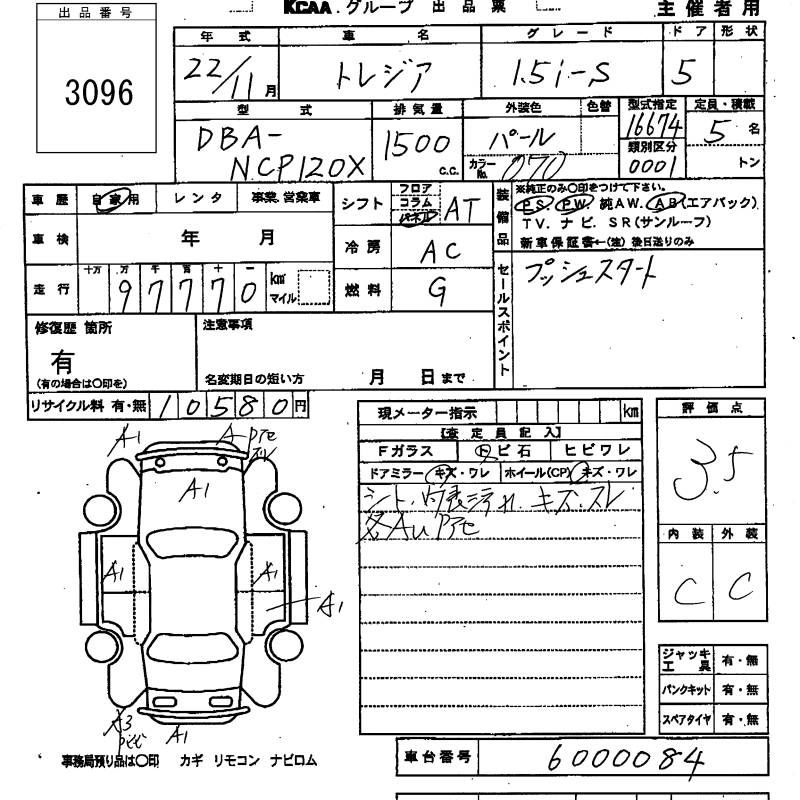 KCAA グループ 出品票 主催者用
出品番号
3096
年式 車名 グレード ドア 形状
22/11月 トレジア 1.5i-S 5
型式 排気量 外装色 色替 型式指定 定員・積載
DBA-
NCP120X 1500 c.c. パール 16674 5名
カラーNo. 070 類別区分 0001 トン
車歴 自家用 レンタ 事業.営業車
シフト フロア コラム パネル AT
装備品 ※純正のみ○印をつけて下さい。
P.S. P.W. 純A.W. A.B(エアバック)
T.V. ナビ. S.R(サンルーフ)
新車保証書←(注)後日送りのみ
車検 年 月
冷房 AC
走行 十万 万 千 百 十 一
97770 km マイル
燃料 G
セールスポイント プッシュスタート
修復歴 箇所
有
(有の場合は○印を)
注意事項
名変期日の短い方 月 日まで
リサイクル料 有・無 10580円
現メーター指示 km
【査定員記入】
Fガラス トビ石 ヒビワレ
ドアミラー キズ・ワレ ホイール(CP) キズ・ワレ
シート.内張汚れ.キズ.スレ
各AU
評価点
3.5
内装 外装
C C
A1 A
A1
A1 A1
A1
A1
ジャッキ工具 有・無
パンクキット 有・無
スペアタイヤ 有・無
事務局預り品は○印 カギ リモコン ナビロム
車台番号 6000084